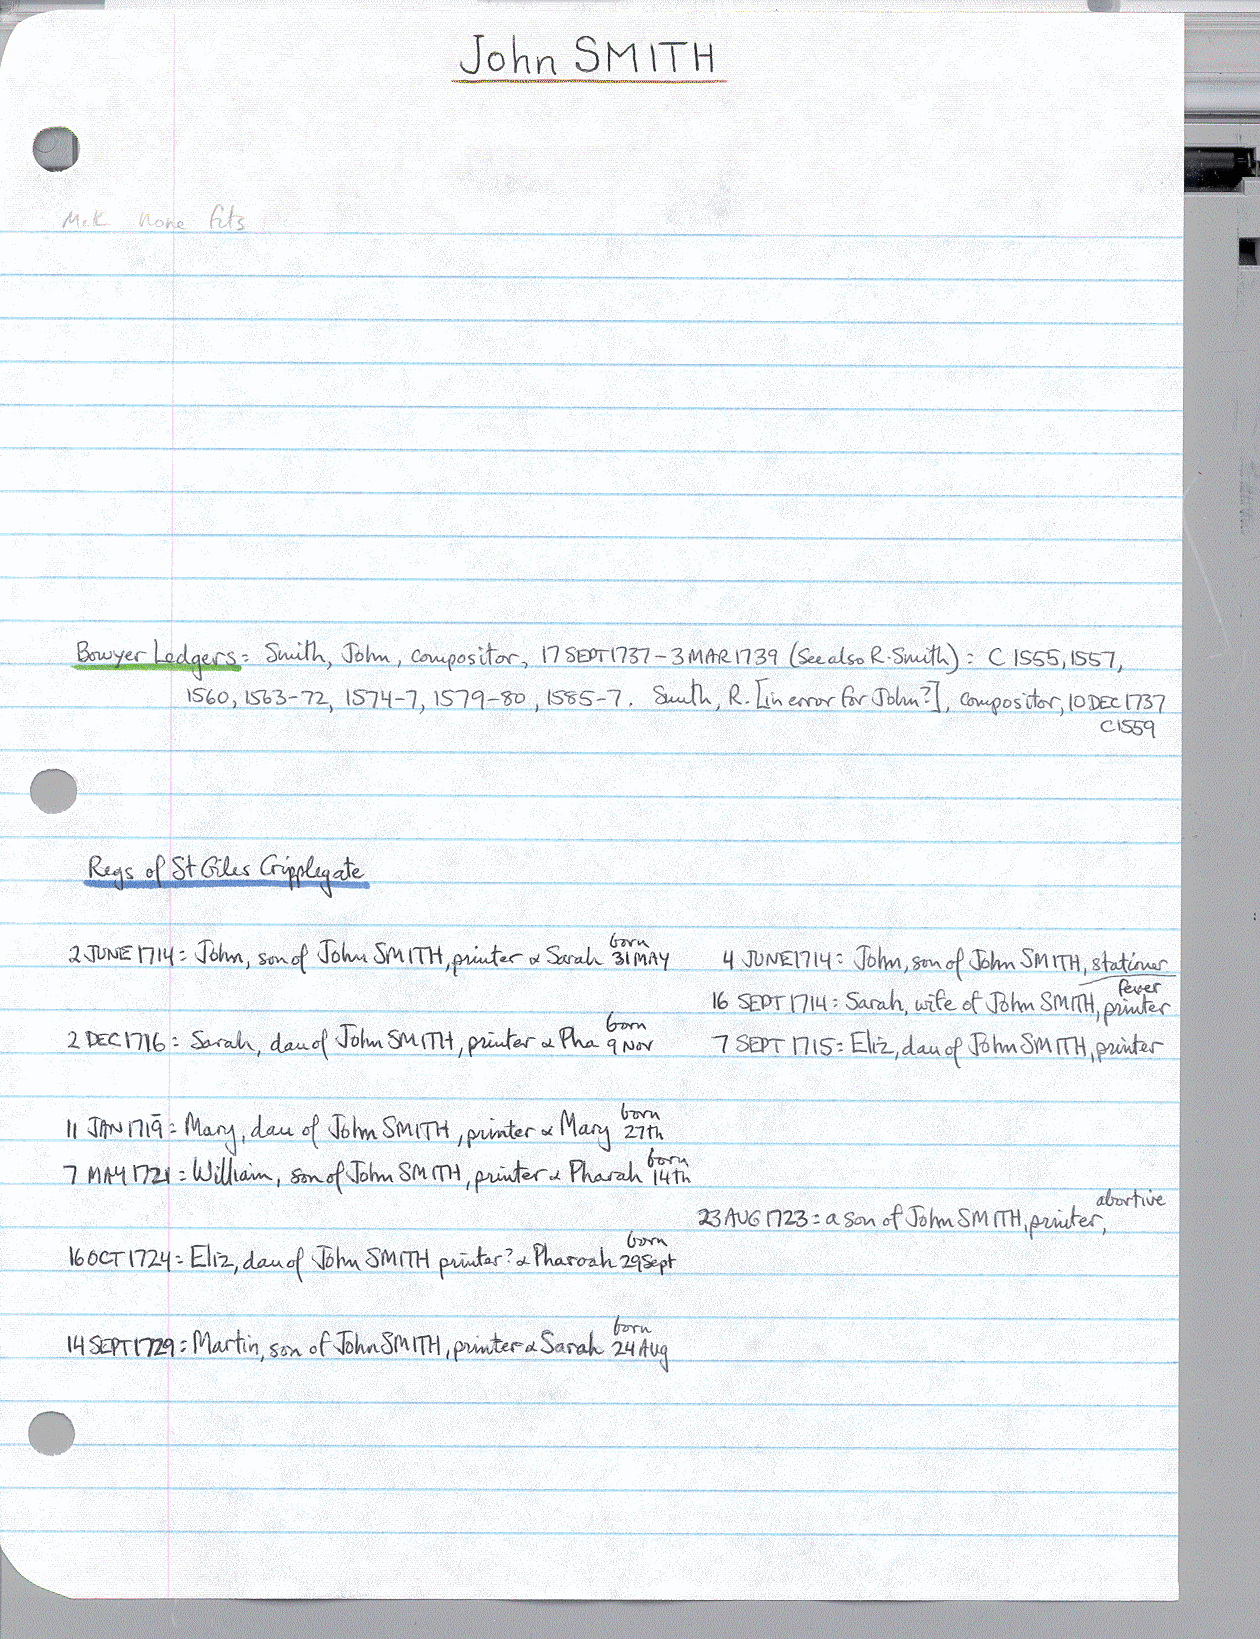 John SMITH
McK none fits
Bowyer Ledgers: Smith, John, compositor, 17 SEPT 1737 – 3 MAR 1739 (See also R. Smith): C 1555, 1557,
1560, 1563-72, 1574-7, 1579-80, 1585-7. Smith, R. [in error for John?], compositor, 10 DEC 1737
C1559
Regs of St Giles Cripplegate
2 JUNE 1714: John, son of John SMITH, printer & Sarah born 31 MAY
4 JUNE 1714: John, son of John SMITH, stationer
16 SEPT 1714: Sarah, wife of John SMITH, printer fever
2 DEC 1716: Sarah, dau of John SMITH, printer & Pha born 9 Nov
7 SEPT 1715: Eliz, dau of John SMITH, printer
11 JAN 1719: Mary, dau of John SMITH, printer & Mary born 27th
7 MAY 1721: William, son of John SMITH, printer & Pharah born 14th
23 AUG 1723: a son of John SMITH, printer, abortive
16 OCT 1724: Eliz, dau of John SMITH printer? & Pharoah born 29 Sept
14 SEPT 1729: Martin, son of John SMITH, printer & Sarah born 24 Aug